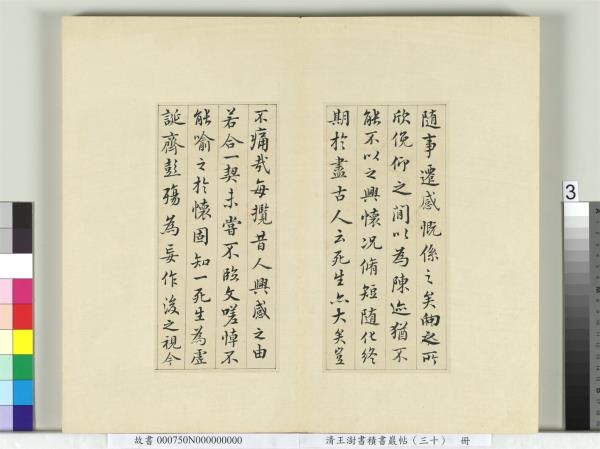 随事遷感慨係之矣向之所
欣俛仰之間以為陳迹猶不
能不以之興懷况脩短随化終
期於盡古人云死生亦大矣豈
不痛哉每攬昔人興感之由
若合一契未嘗不臨文嗟悼不
能喻之於懷固知一死生為虛
誕齊彭殤為妄作後之視今
3
故書 000750N000000000
清王澍書積書巖帖（三十） 冊